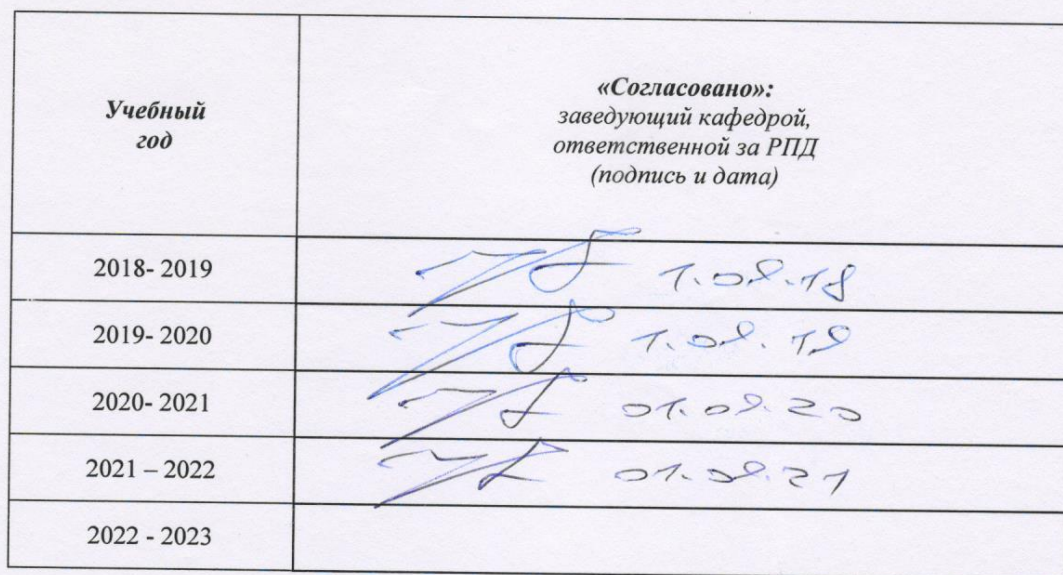 Учебный
год
«Согласовано»:
заведующий кафедрой,
ответственной за РПД
(подпись и дата)
2018- 2019
1.09.18
2019- 2020
1.09.19
2020- 2021
01.09.20
2021 – 2022
01.09.21
2022 - 2023